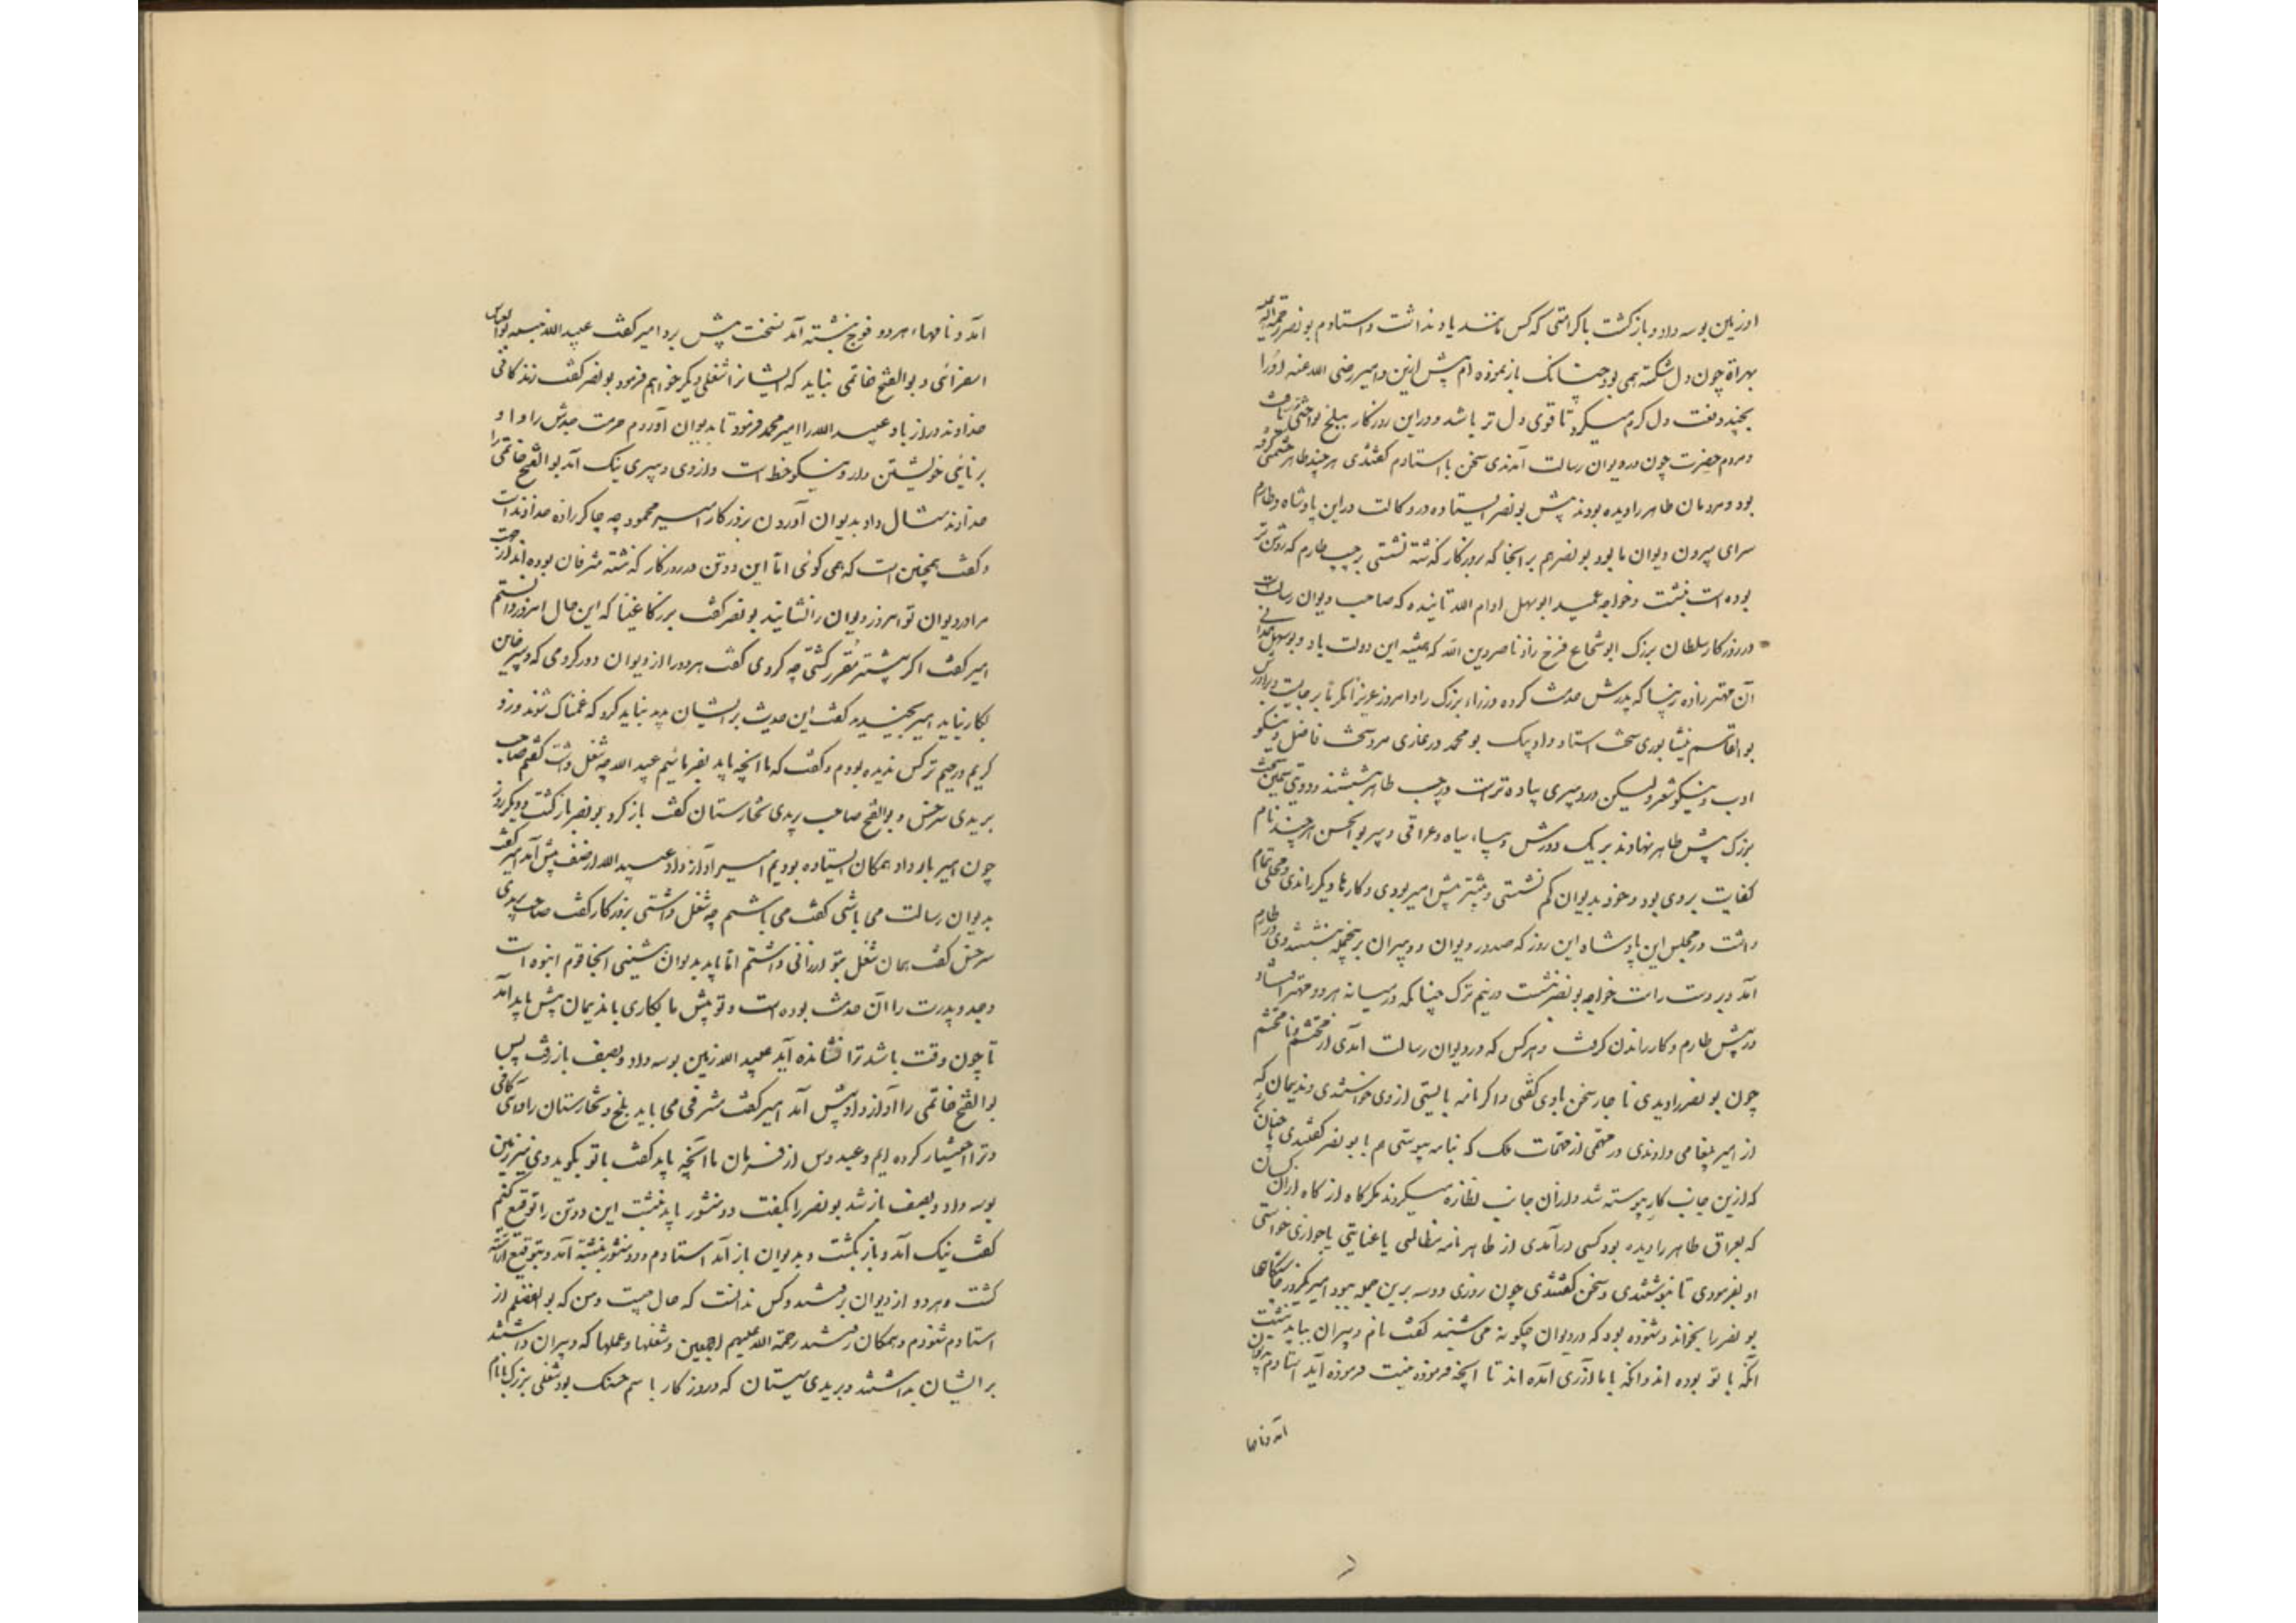 او زمین بوسه داد و بازگشت با کرامتی که کس مانند یاد نداشت و استادم بونصر رحمة الله علیه
بهراة چون دل شکسته همی بود چنانک بازنموده ام پیش ازین و امیر رضی الله عنه او را
بخندد و گفت دل گرم میکرد تا قوی دل تر باشد و درین روزگار ببلخ نواختی
و مردم حضرت چون در دیوان رسالت آمدندی سخن با استادم گفتندی هر چند طاهر حشمتی گرفته
بود و مردمان طاهر را دیده بودند پیش بونصر ایستاده در وکالت دراین پادشاه و طارم
سرای بیرون دیوان ما بود بونصر هم بر آنجا که بروزگار گذشته نشستی بر چپ طارم که روشن تر
بوده است بنشست و خواجه عمید ابوسهل ادام الله تائیده که صاحب دیوان رسالت
در روزگار سلطان بزرگ ابوشجاع فرخ زاد ناصر دین الله که همیشه این دولت باد و بوسهل همدانی
آن مهتر زاده زیبا که پدرش خدمت کرده وزراء بزرگ را و امروز عزیزا مکرما بر جایست و برادرش
بوالقاسم نیشابوری سخت استاد و ادیب بو محمد در غازی مرد سخت فاضل و نیکو
ادب و نیکو شعر ولیکن در دبیری پیاده تر است و در چپ طاهر بنشستند و دویتی سیمین سخت
بزرگ پیش طاهر نهادند بر یک دورش دیبا، سیاه و عراقی دبیر بوالحسن هر چند نام
کفایت بر وی بود و خود بدیوان کم نشستی و بیشتر پیش امیر بودی و کارها دیگر راندی و محلی تمام
داشت در مجلس این پادشاه این روز که صدور دیوان و دبیران برینجمله بنشستند وی در طارم
آمد و بر دست راست خواجه بونصر بنشست در نیم ترک چنانکه در میانه هر دو مهتر افتاد
در پیش طارم و کار راندن گرفت و هر کس که در دیوان رسالت آمدی از محتشم و نامحتشم
چون بونصر را دیدی ناچار سخن با وی گفتی و اگر نامه بایستی از وی خواستندی و ندیمان که
از امیر پیغامی دادندی در مهمی از مهمات ملک که بنامه پیوستی هم با بونصر گفتندی تا چنان
که ازین جانب کار پیوسته شد و از آن جانب نظاره میکردند مگر گاه از گاه از آن کسان
که بعراق طاهر را دیده بود کسی درآمدی از طاهر نامه مظالمی یا عنایتی یا جوازی خواستی
او بفرمودی تا نبوشتندی و سخن گفتندی چون روزی دو سه برین جمله ببود امیر یکروز چاشتگاهی
بونصر را بخواند و شنوده بود که در دیوان چگونه می نشینند گفت نام دبیران بباید نبشت
آنکه با تو بوده اند و آنکه با ما از ری آمده اند تا آنچه فرموده نیست فرموده آید استادم بدیوان
آمد و نامها
آمد و نامهاء هر دو فوج نبشته آمد نسخت پیش برد امیر گفت عبیدالله نبسه بوالعباس
اسفرائنی و بوالفتح خاتمی نباید که ایشانرا شغلی دیگر خواهم فرمود بونصر گفت زندگانی
خداوند دراز باد عبیدالله را امیر محمد فرمود تا بدیوان آوردم حرمت جدش را و او
برنائی خویشتن دار و نیکو خط است و از وی دبیری نیک آید بوالفتح خاتمی را
خداوند مثال داد بدیوان آوردن بروزگار امیر محمود چه چاکر زاده خداوند است
و گفت همچنین است که می گوئی اما این دو تن در روزگار گذشته مشرفان بوده اند از جهت
مرا در دیوان تو امروز دیوان را نشایند بونصر گفت بزرگا غبنا که این حال امروز دانستم
امیر گفت اگر پیشتر مقرر گشتی چه کردی گفت هر دو را از دیوان دور کردمی که دبیر خائن
بکار نیاید امیر بخندید گفت این حدیث بر ایشان پدید نباید کرد که غمناک شوند و زو
کریم و رحیم تر کس ندیده بودم و گفت که ما آنچه باید بفرمائیم عبیدالله چه شغل داشت گفتم صاحب
بریدی سرخس و بوالفتح صاحب بریدی تخارستان گفت باز گرد بونصر بازگشت و دیگر روز
چون امیر بار داد همگان ایستاده بودیم امیر آواز داد عبیدالله از صف پیش آمد امیر گفت
بدیوان رسالت می باشی گفت می باشم چه شغل داشتی بروزگار گفت صاحب بریدی
سرخس گفت همان شغل بتو ارزانی داشتم اما باید بدیوان ننشینی آنجا قوم انبوه است
و جد و پدرت را آن خدمت بوده است و تو پیش ما بکاری با ندیمان پیش باید آمد
تا چون وقت باشد ترا نشانده آید عبیدالله زمین بوسه داد و بصف باز رفت پس
بوالفتح خاتمی را آواز داد پیش آمد امیر گفت مشرفی می باید بلخ و تخارستان را و آنی کافی
و ترا اختیار کرده ایم و عبدوس از فرمان ما آنچه باید گفت با تو بگوید وی نیز زمین
بوسه داد و بصف باز شد بونصر را بگفت دو منشور باید نبشت این دو تن را تا توقیع کنم
گفت نیک آمد و باز گشت و بدیوان باز آمد استادم و دو منشور نبشته آمد و بتوقیع آراسته
گشت و هر دو از دیوان برفتند و کس ندانست که حال چیست و من که بوالفضلم از
استادم شنودم و همگان رفتند رحمة الله علیهم اجمعین و شغلها و عملها که دبیران داشتند
بر ایشان بداشتند و بریدی سیستان که در روزگار با سم حسنک بود شغلی بزرگ با نام